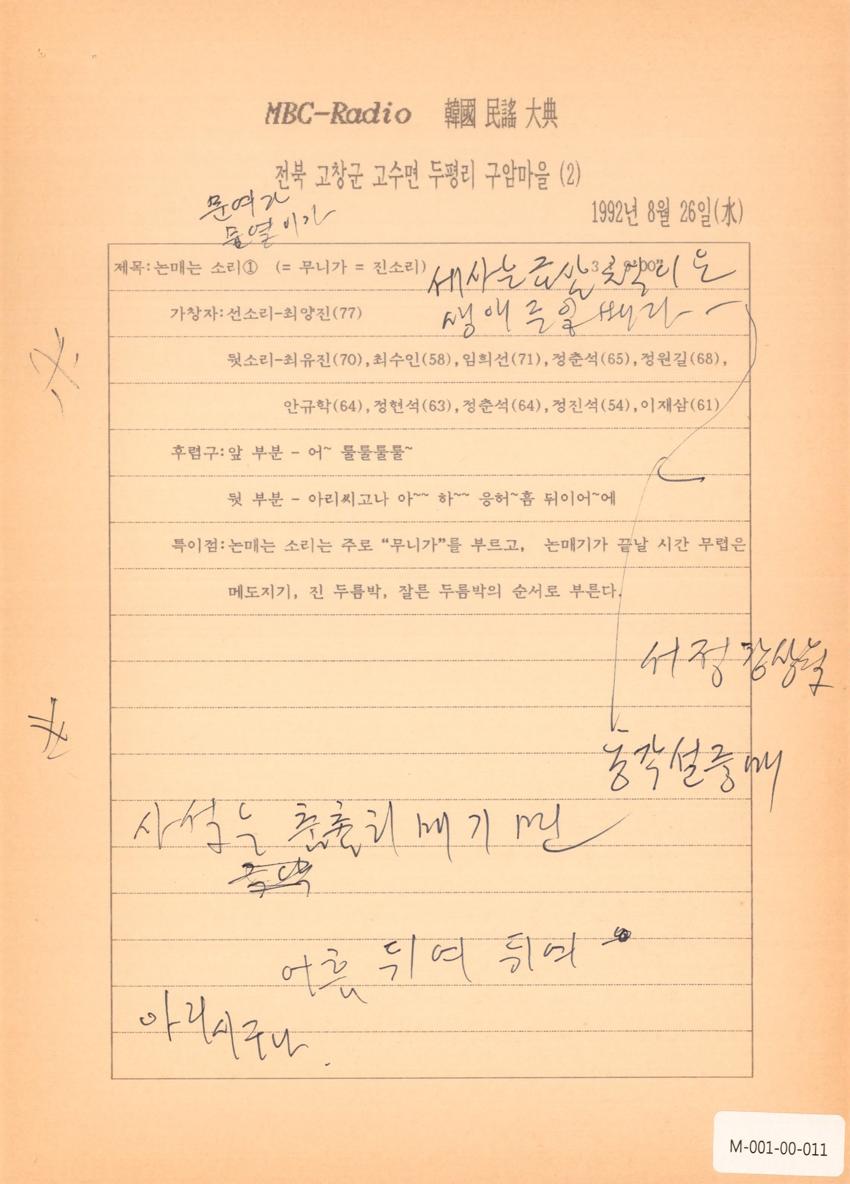 MBC-Radio 韓國 民謠 大典
전북 고창군 고수면 두평리 구암마을 (2)
1992년 8월 26일(水)
문여가
제목:논매는 소리① (= 무니가 = 진소리)
가창자:선소리-최양진(77)
뒷소리-최유진(70),최수인(58),임희선(71),정춘석(65),정원길(68),
안규학(64),정현석(63),정춘석(64),정진석(54),이재삼(61)
후렴구:앞 부분 - 어~ 룰룰룰룰~
뒷 부분 - 아리씨고나 아~~ 하~~ 응허~흠 뒤이어~에
특이점:논매는 소리는 주로 “무니가”를 부르고, 논매기가 끝날 시간 무렵은
메도지기, 진 두름박, 잘른 두름박의 순서로 부른다.
서정
사설는 촘촘히 매기면
어흠 뒤여 뒤여
아리시구나.
M-001-00-011